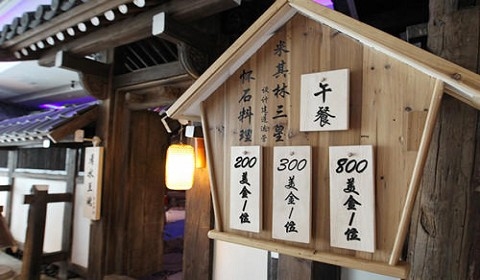 米其林三星
怀石料理
午餐
200
美金/位
300
美金/位
800
美金/位